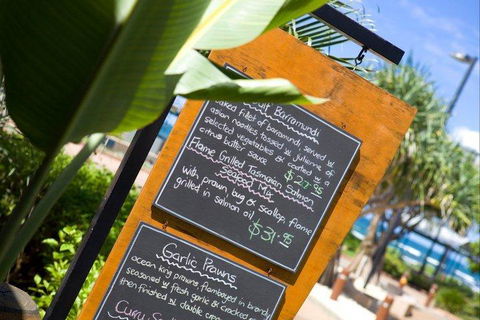 Barramundi
baked fillet of barramundi, served w
asian noodles tossed w julienne of
selected vegetables & coated w a
citrus butter sauce $27.95
Flame Grilled Tasmanian Salmon
Seafood Mix
with prawn, bug & scallop, flame
grilled in salmon oil
$31.95
Garlic Prawns
ocean king prawns, flambeyed in bar
seasoned w fresh garlic & cracked
then finished w double
Curry